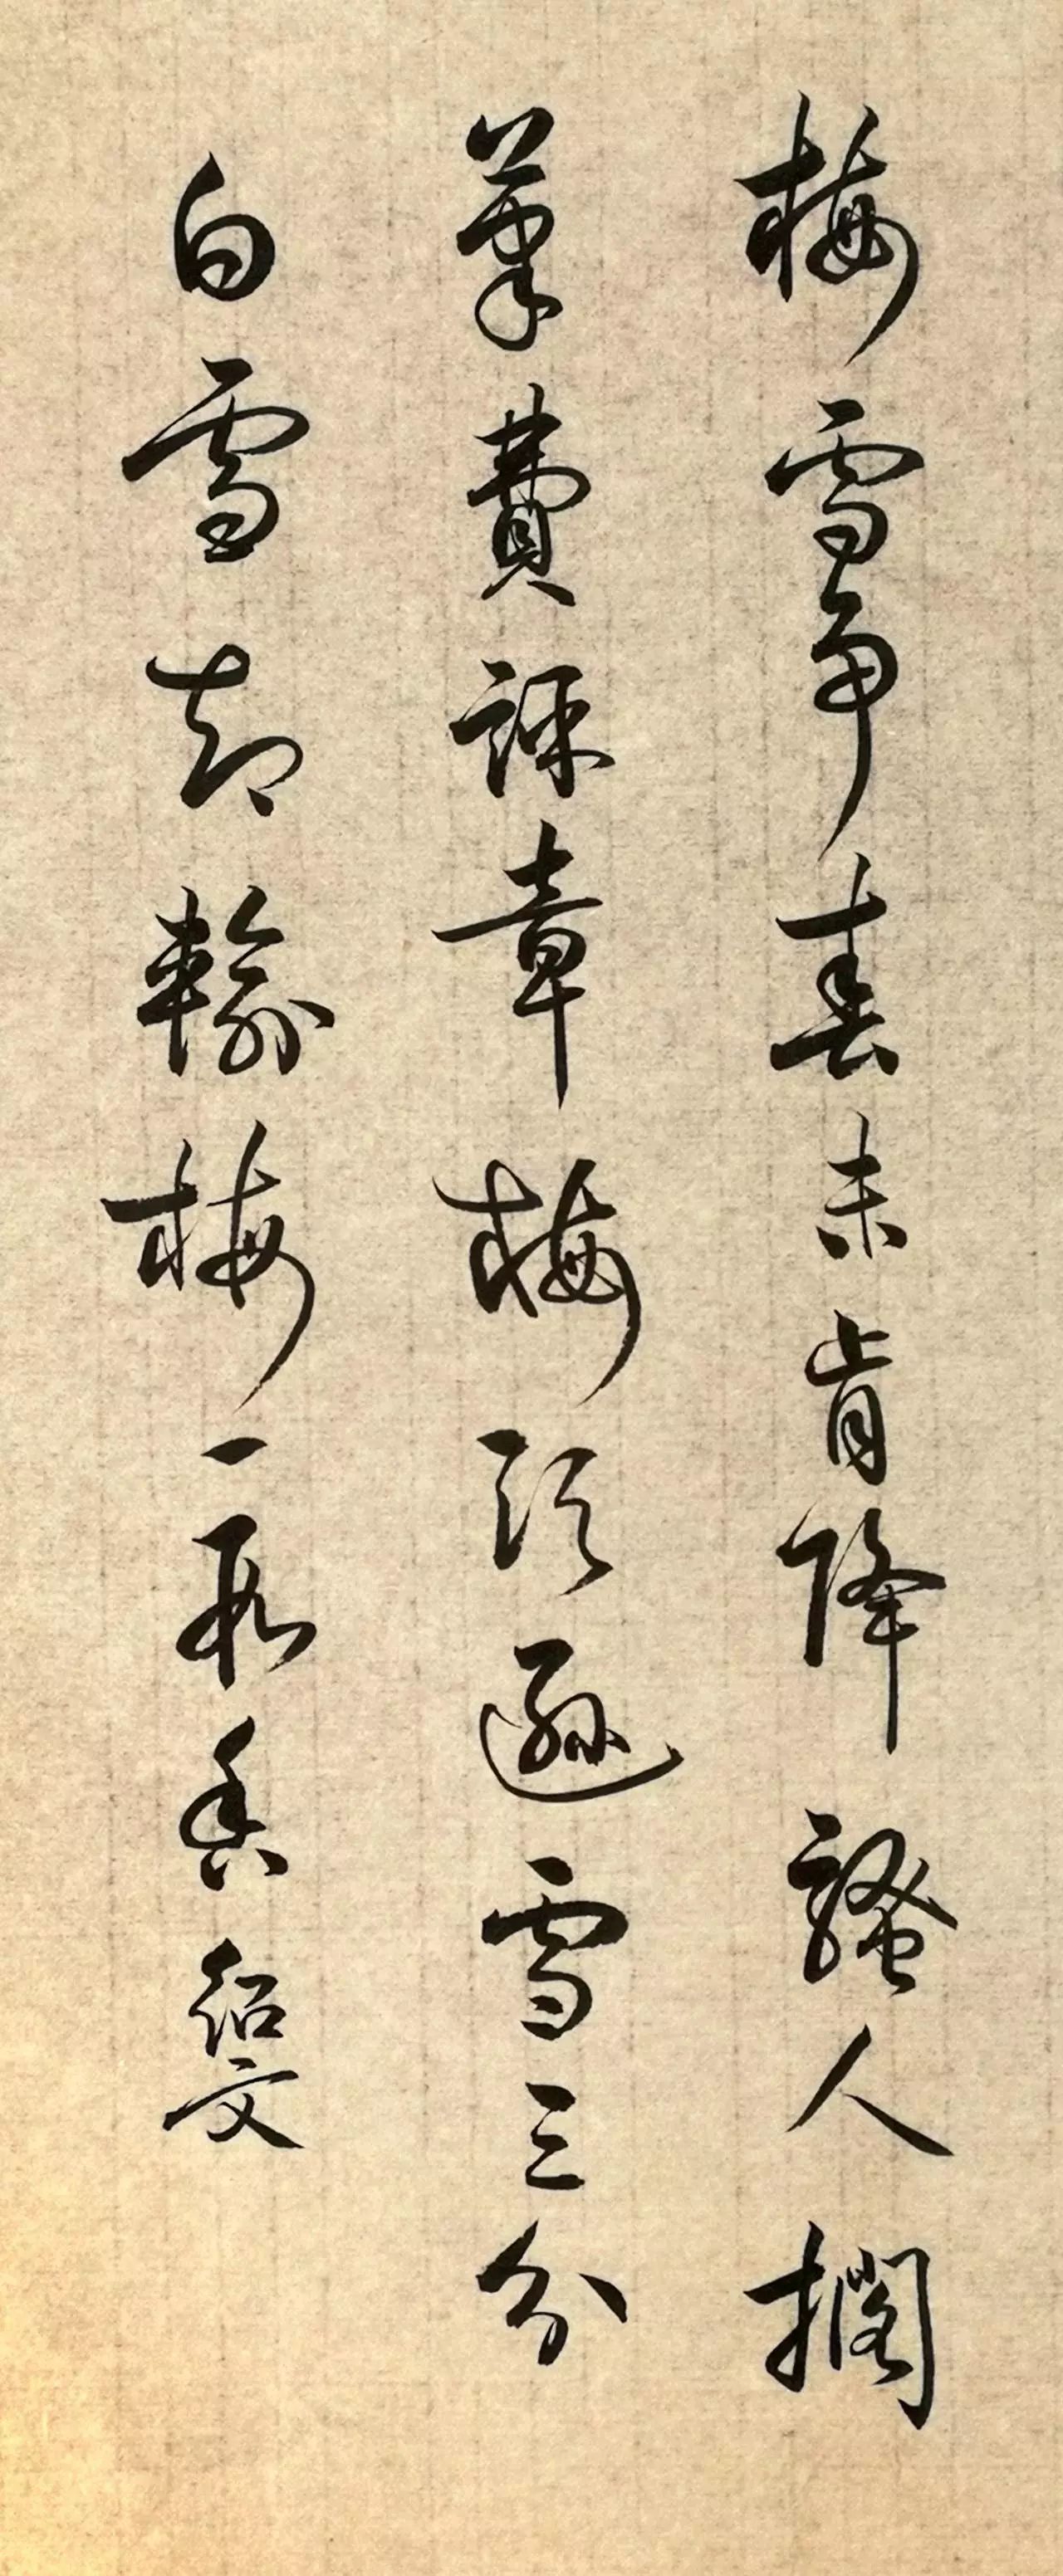 梅雪争春未肯降騷人擱
筆費評章梅須遜雪三分
白雪却輸梅一段香紹文